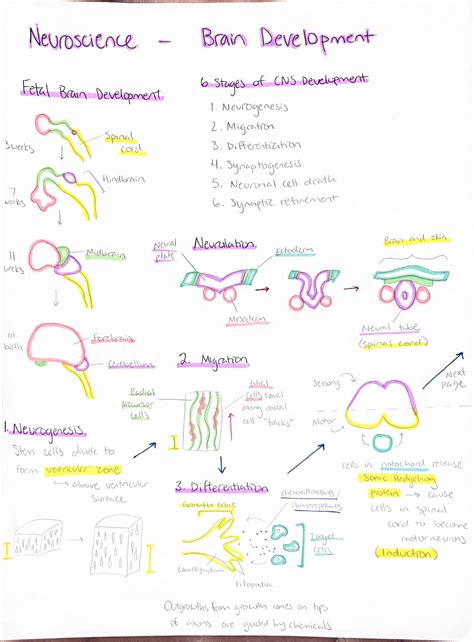 Neuroscience - Brain Development
Fetal Brain Development
3 weeks
Spinal
cord
7
weeks
Hindbrain
11
weeks
Midbrain
at
birth
Forebrain
Cerebellum
6 Stages of CNS Development
1. Neurogenesis
2. Migration
3. Differentiation
4. Synaptogenesis
5. Neuronal cell death
6. Synaptic refinement
Neurulation
Neural
plate
Ectoderm
Mesoderm
Brain and skin
Neural tube
(spinal cord)
1. Neurogenesis
Stem cells divide to
form ventricular zone
↳ above ventricular
surface
2. Migration
Radial
precursor
cells
Glial
cells travel
along radial
cell "tracks"
Sensory
Motor
Next
page
cells in notochord release
Sonic Hedgehog
protein → cause
cells in spinal
cord to become
motorneurons
(Induction)
3. Differentiation
Growth cone
chemoattractants/
chemorepellants
Target
cells
Lamellipodium
Filopodia
Outgrowths from growth cones on tips
of axons are guided by chemicals